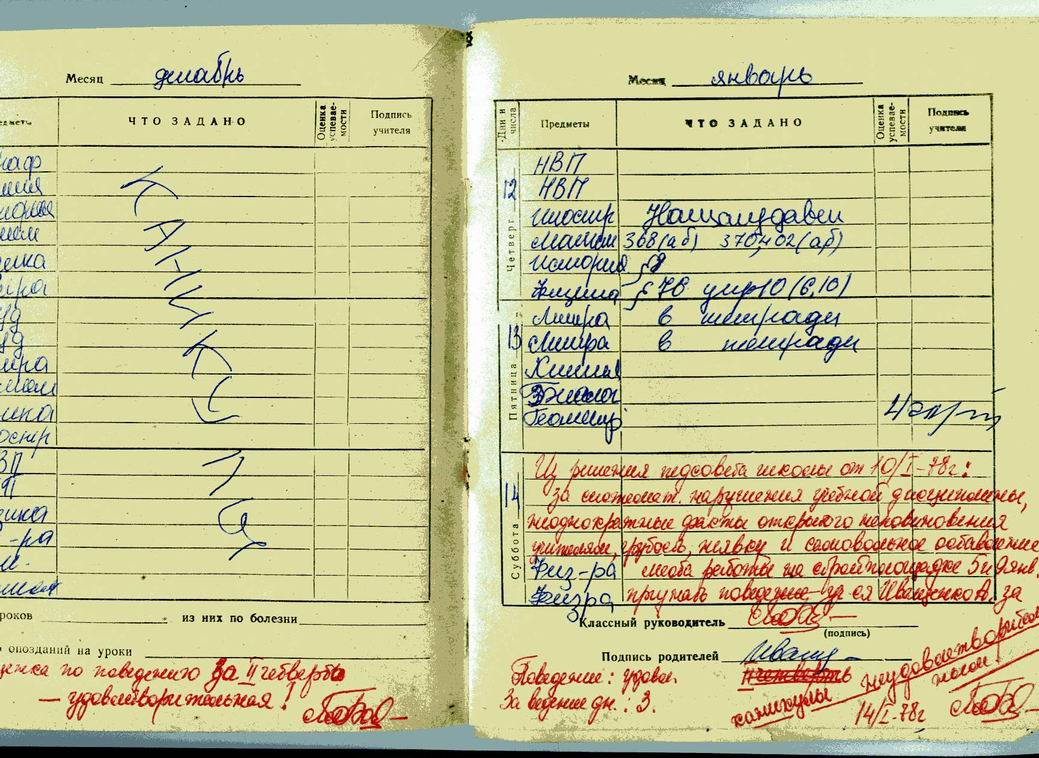 Месяц декабрь
ЧТО ЗАДАНО
Оценка успеваемости
Подпись учителя
КАНИКУЛЫ
уроков из них по болезни
опозданий на уроки
оценка по поведению за II четверть
— удовлетворительная!
Месяц январь
Дни и числа
Предметы
ЧТО ЗАДАНО
Оценка успеваемости
Подпись учителя
12
Четверг
НВП
НВП
иностр
матем 368(а б) 370,402(а,б)
история §
физика § 76 упр10(6,10)
13
Пятница
Лит-ра в тетради
Лит-ра в тетради
Химия
Биолог
Геометр
14
Суббота
Из решения педсовета школы от 10/I-78г:
за системат. нарушения учебной дисциплины,
неоднократные факты открытого неповиновения
учителям, грубость, неявку и самовольное оставление
Физ-ра места работы на стройплощадке 5 и 9 янв.
Физра признать поведение уч-ся Иващенко А. за
Классный руководитель
(подпись)
Подпись родителей
Поведение: удовл.
За ведение дн.: 3.
II четверть
каникулы
неудовлетворительным!
14/I-78г